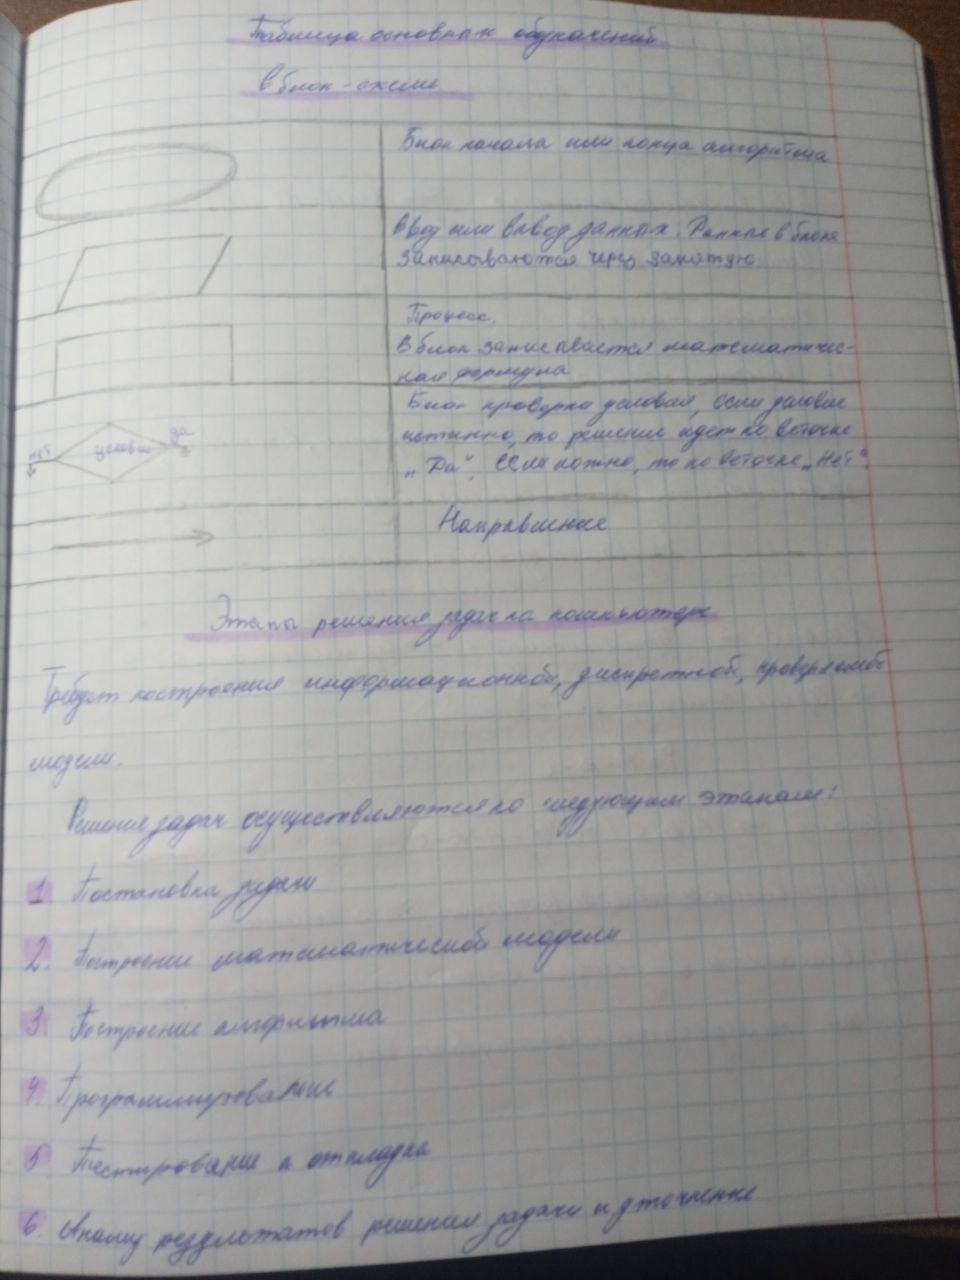 Таблица основных обозначений
в блок-схеме
Блок начала или конца алгоритма
Ввод или вывод данных. Данные в блоке
записываются через запятую
Процесс.
В блок записывается математичес-
кая формула
Блок проверки условия, если условие
истинно, то решение идет по веточке
„Да“. Если ложно, то по веточке „Нет“
нет условие да
Направление
Этапы решения задач на компьютере
Требует построения информационной, дискретной, проверяемой
модели.
Решение задач осуществляются по следующим этапам:
1 Постановка задачи
2. Построение математической модели
3. Построение алгоритма
4. Программирование
5 Тестирование и откладка
6. Анализ результатов решения задачи и уточнение